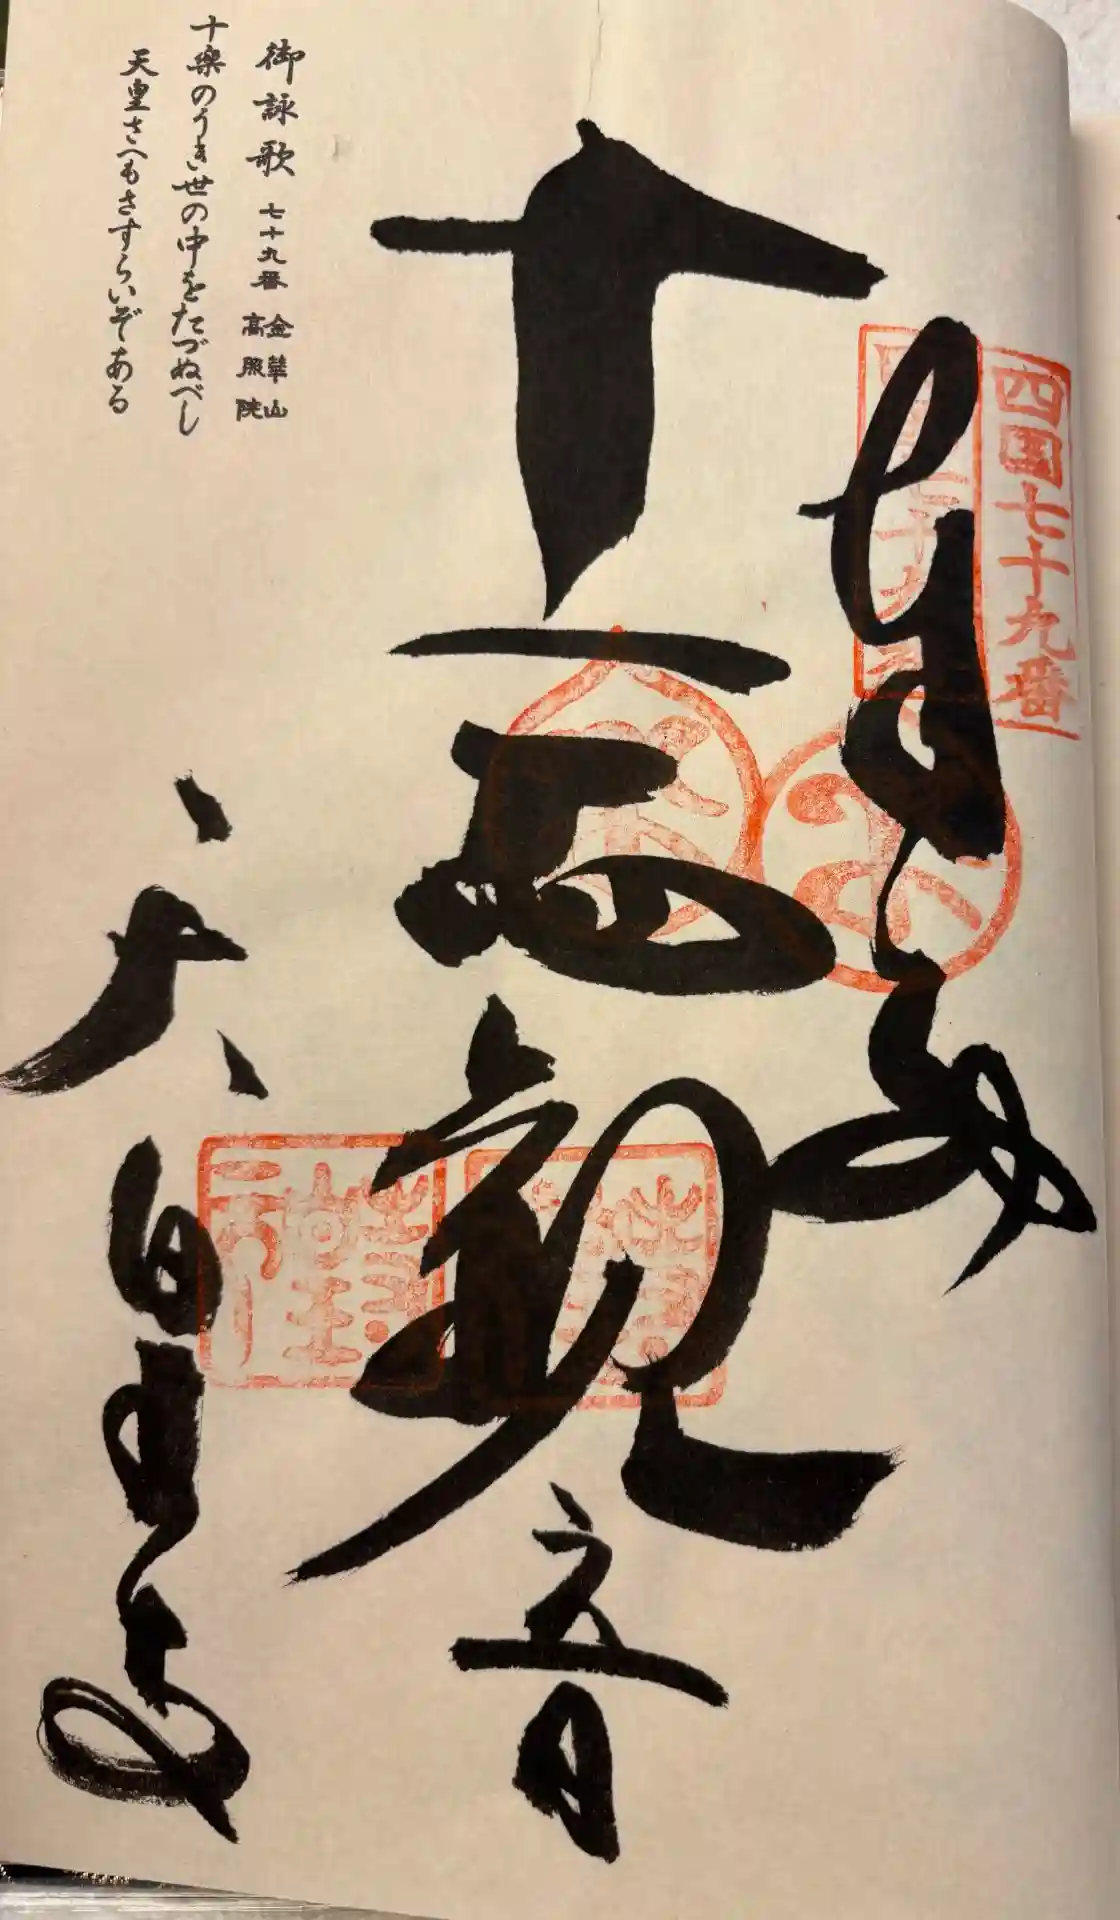 四国七十九番
奉拝
十一面観音
天皇寺
御詠歌 七十九番 金華山 高照院
十楽のうき世の中をたづぬべし
天皇さへもさすらいぞある